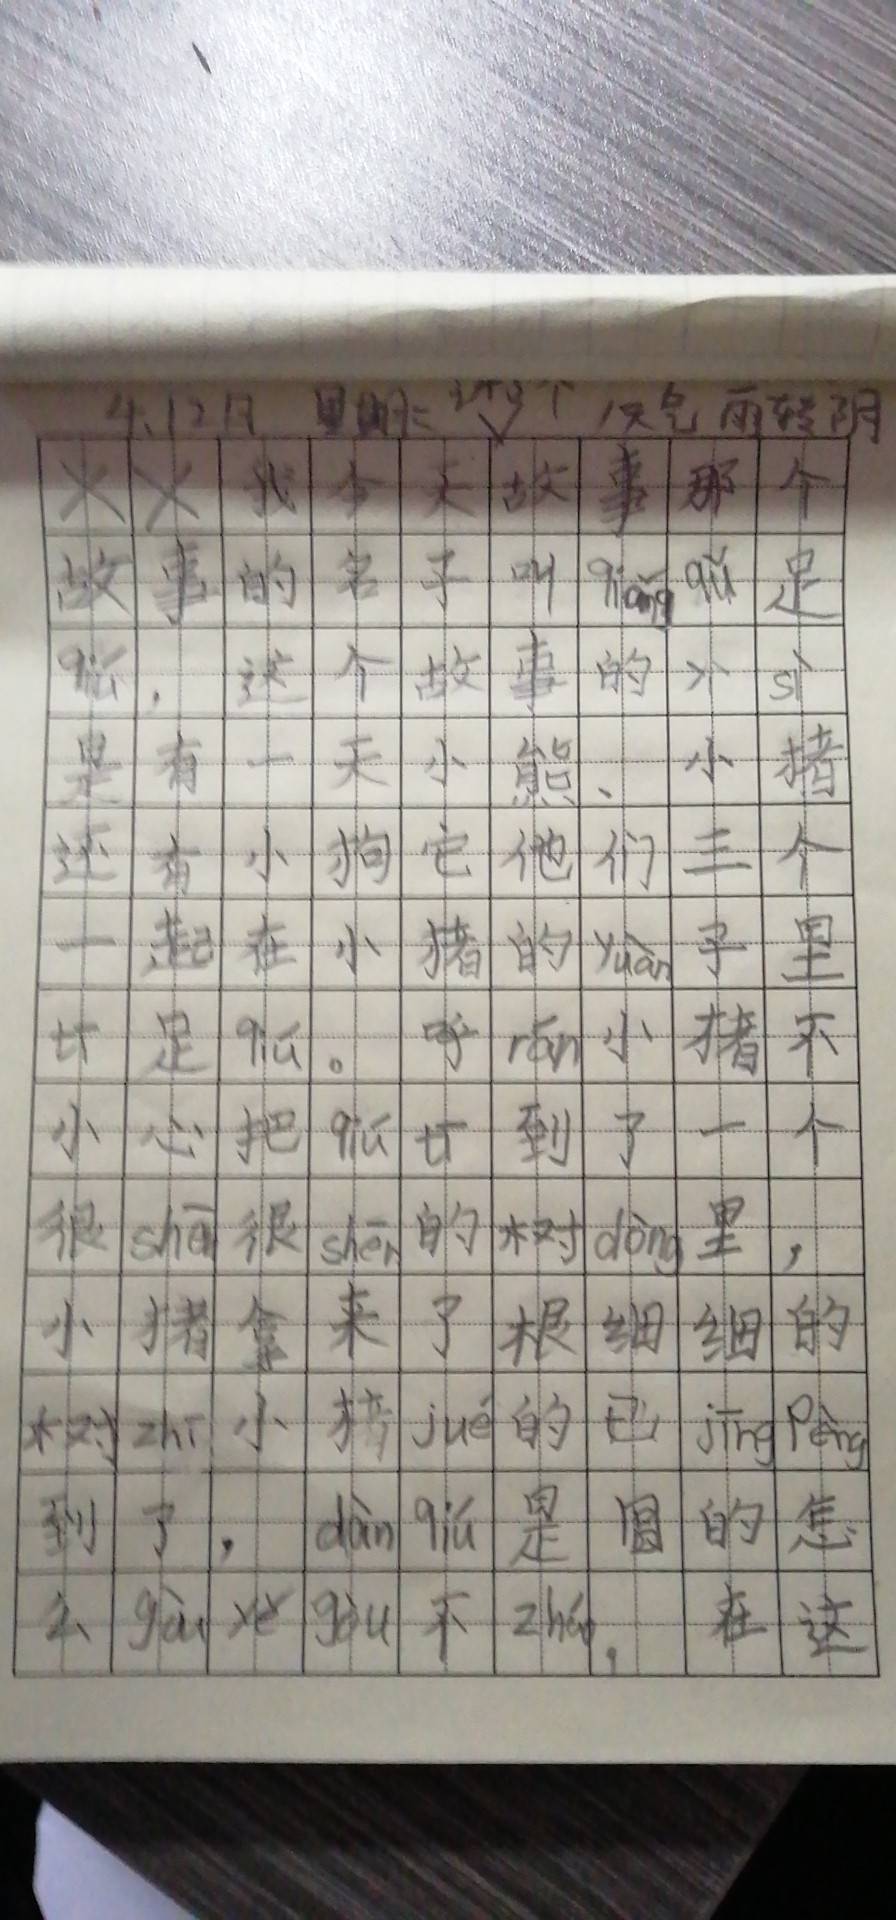 4.12日 星期二 天气 雨转阴
我今天故事那个
故事的名子叫qiǎng qiǔ足
qiú，这个故事的 sì
是有一天小熊、小猪
还有小狗它他们三个
一起在小猪的yuàn子里
足qiú。呼rán小猪不
小心把qiú 到了一个
很shēn很shēn的树dòng里，
小猪拿来了根细细的
树zhī小猪jué的已jīng pèng
到了，dàn qiú是圆的怎
么gòu yě gòu不zháo，在这